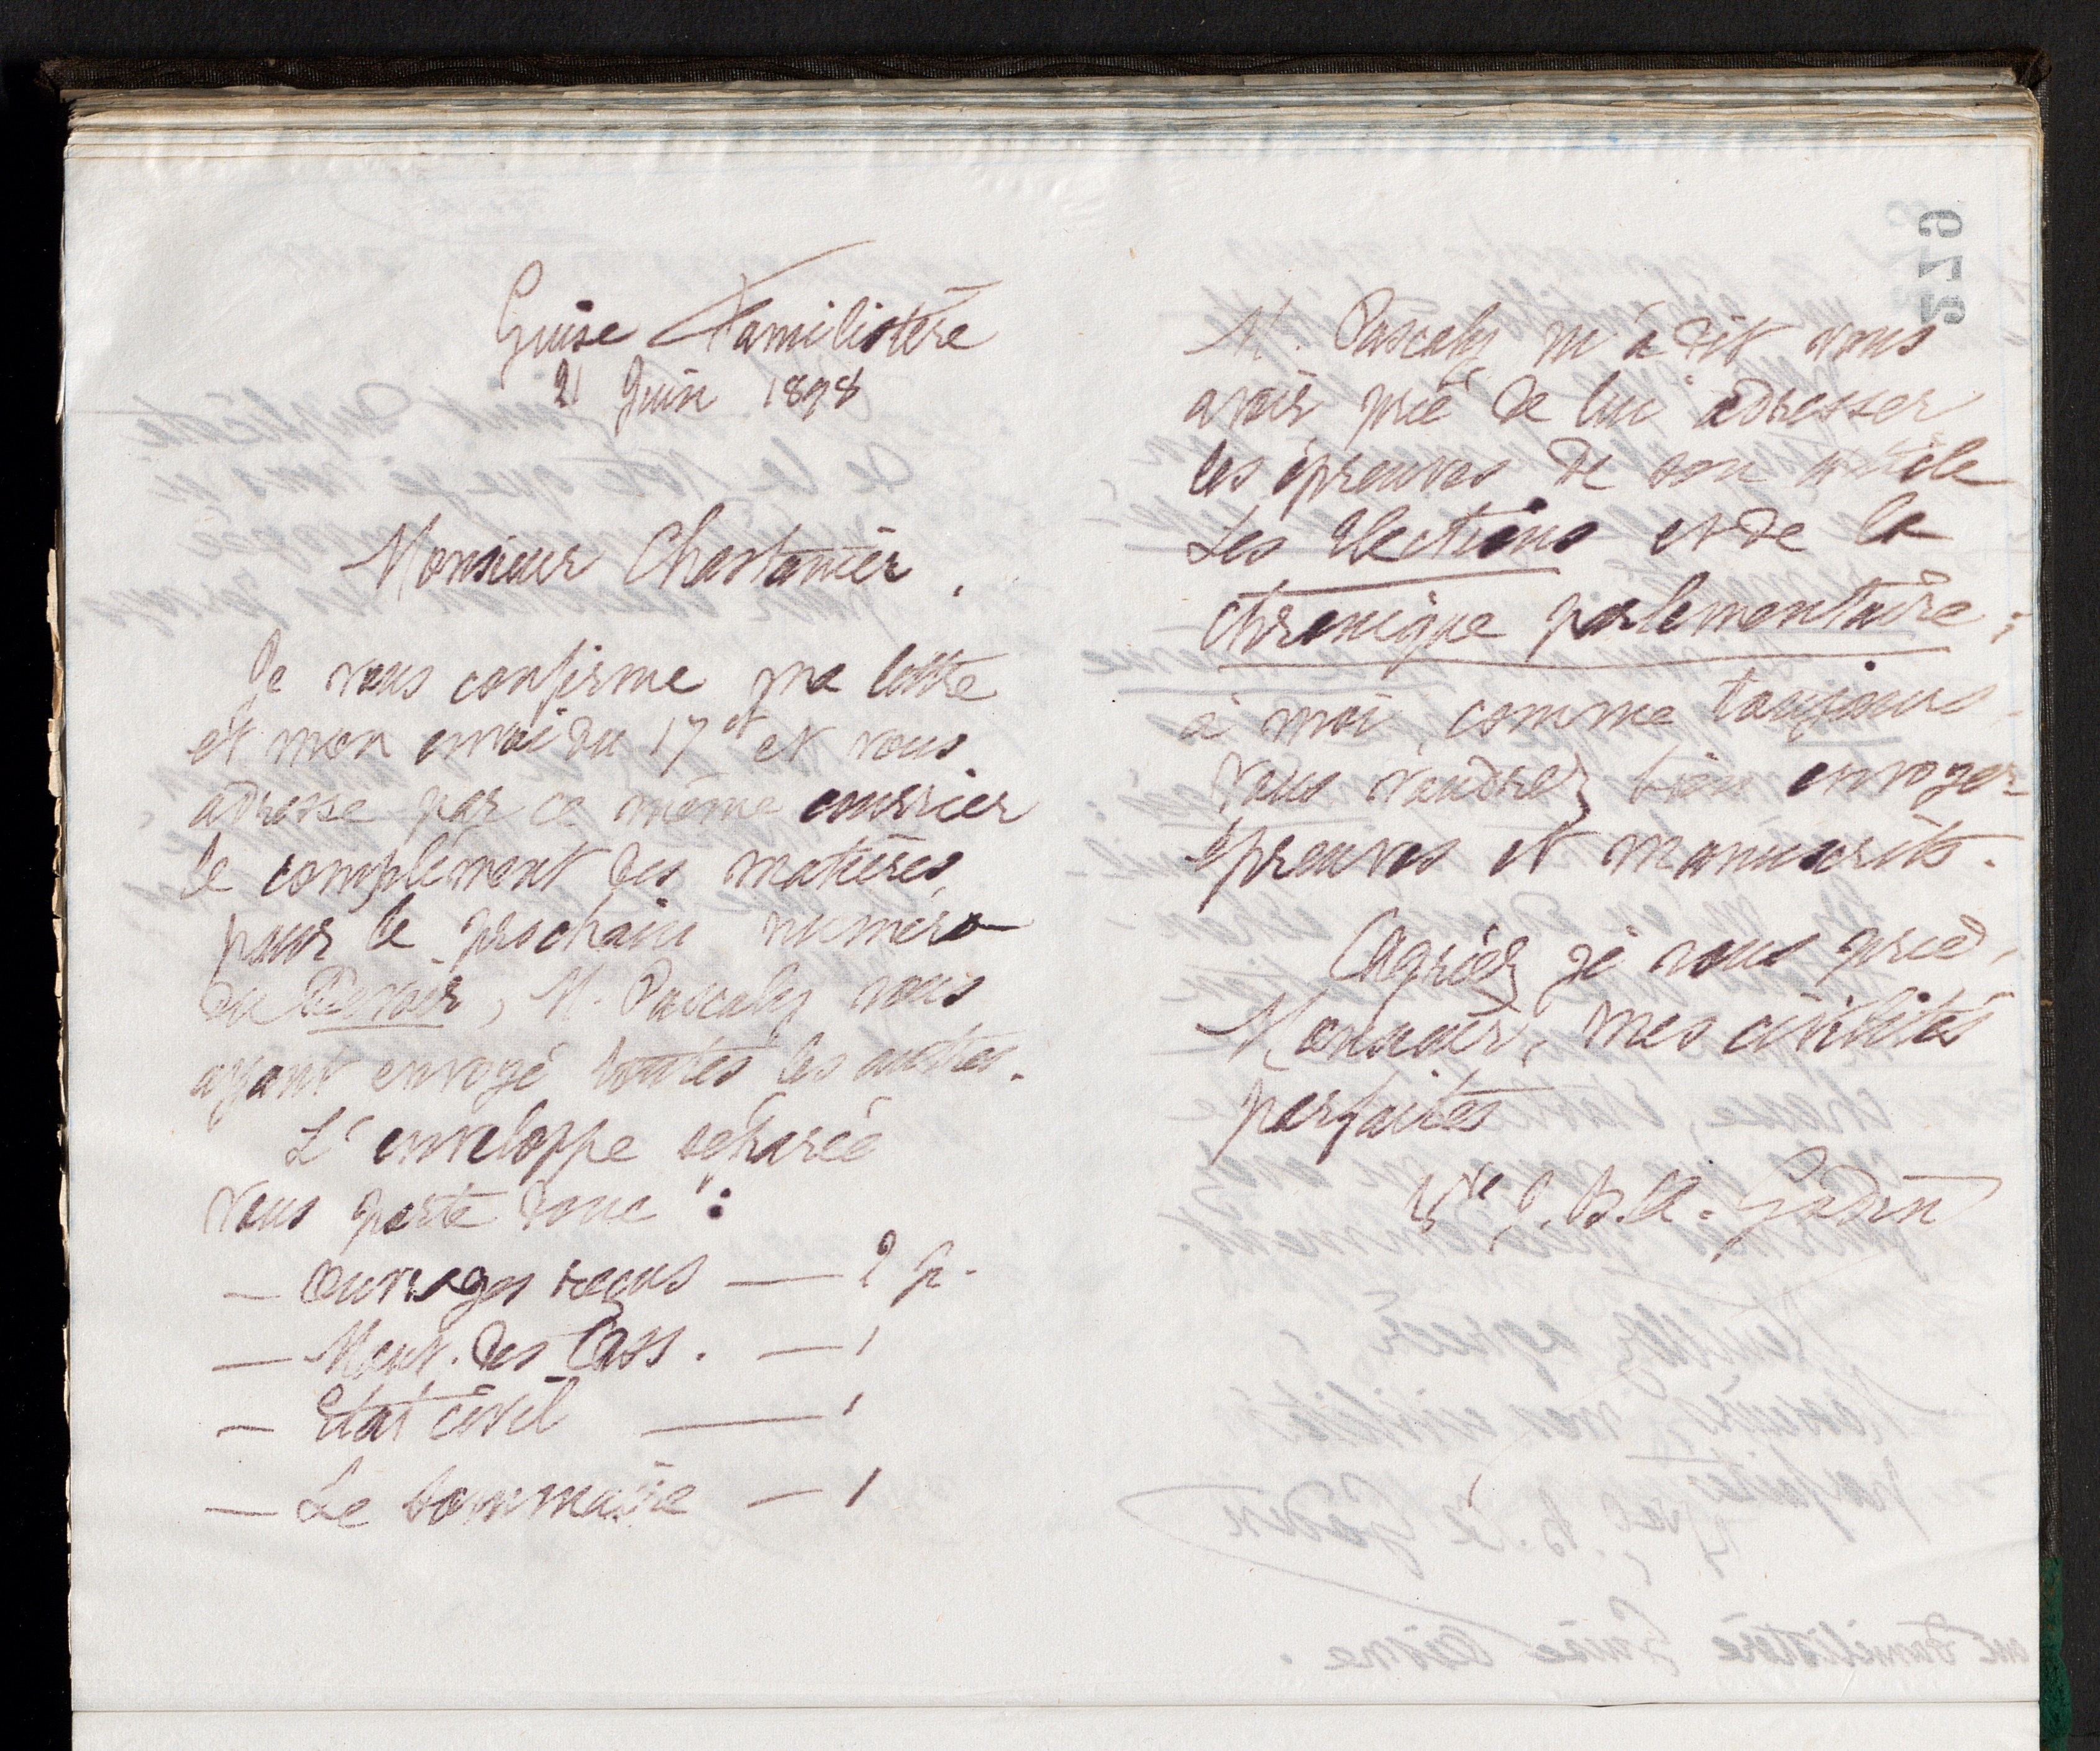 Guise Familistère
21 Juin 1898
Monsieur Chastanier,
Je vous confirme ma lettre
et mon envoi du 17 ct et vous
adresse par ce même courrier
le complément des matières
pour le prochain numéro
du Devoir, M. Pascaly vous
ayant envoyé toutes les autres.
L'enveloppe séparée
vous porte donc :
— Ouvrages reçus — 2 p.
— Mouv. des Ass. — 1
— Etat civil — 1
— Le sommaire — 1
M. Pascaly m'a dit vous
avoir prié de lui adresser
les épreuves de son article
Les Elections et de la
chronique parlementaire ;
à moi, comme toujours
vous voudrez bien envoyer
épreuves et manuscrits.
Agréez je vous prie,
Monsieur, mes civilités
parfaites
Vve J. B. A. Godin
572